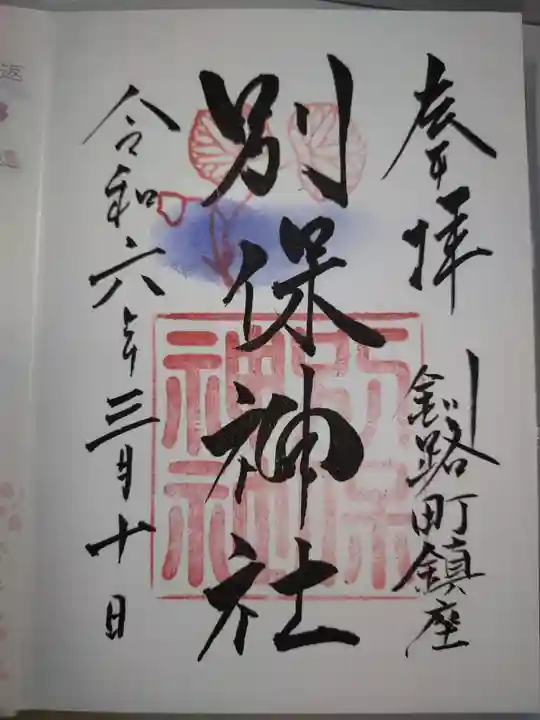 奉拝
釧路町鎮座
別保神社
別保神社
令和六年三月十日
返